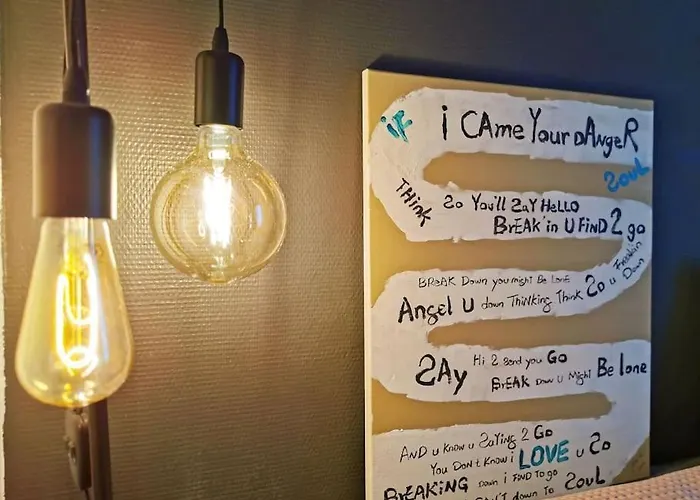 iF i CAme Your DAngeR
Soul
THink So You'll SaY HeLLO
BrEAK'in U FiND 2 go
Freakin
Down
BREAK Down you might Be Lone So u
Angel U down THiNking Think
Hi 2 Send you Go
SAy BrEAK Down u Might Be lone
AND u Know u SaYiNg 2 Go
You DOn't Know i LOVE u So
BrEAKiNG Down i FiND To go
CAN'T Down To SOUL